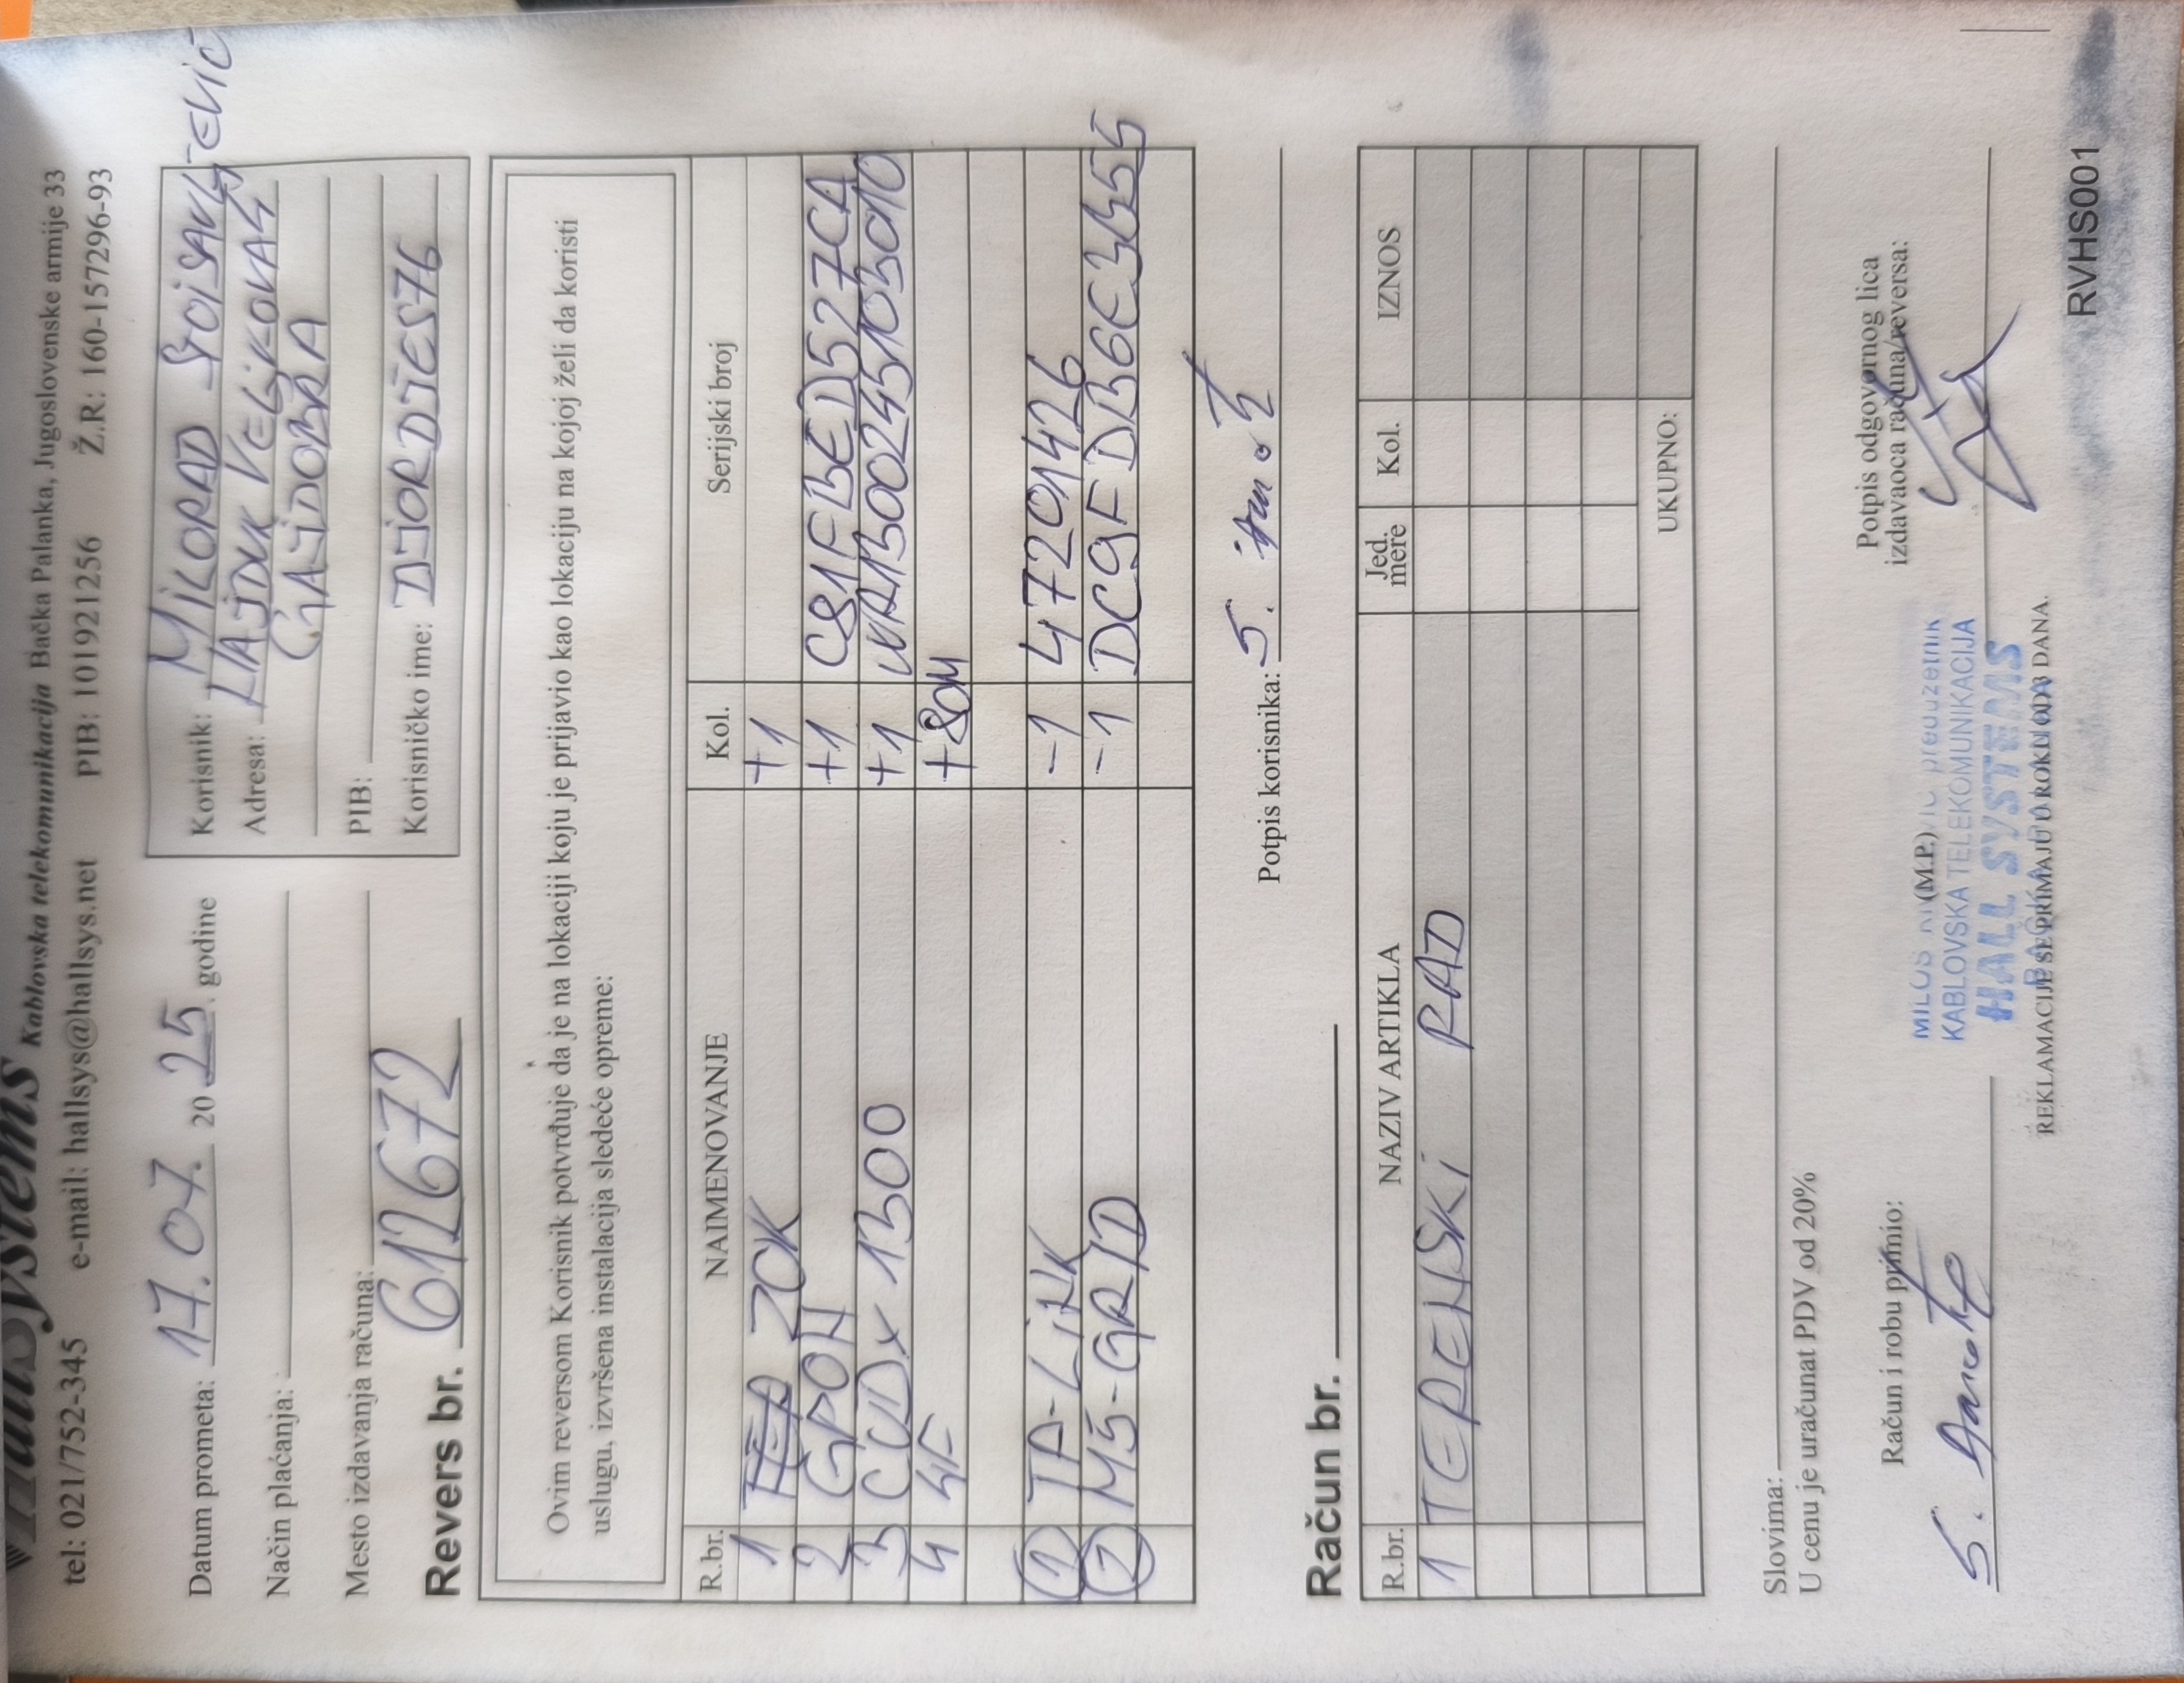 HallSystems Kablovska telekomunikacija Bačka Palanka, Jugoslovenske armije 33
tel: 021/752-345 e-mail: hallsys@hallsys.net PIB: 101921256 Ž.R: 160-157296-93
Datum prometa: 17.07. 2025. godine
Način plaćanja:
Mesto izdavanja računa:
Revers br. 612672
Korisnik: MILORAD STOISAVLJEVIĆ
Adresa: HAJDUK VELJKOVA 4
GAJDOBRA
PIB:
Korisničko ime: DJORDJES76
Ovim reversom Korisnik potvrđuje da je na lokaciji koju je prijavio kao lokaciju na kojoj želi da koristi
uslugu, izvršena instalacija sledeće opreme:
R.br. NAIMENOVANJE Kol. Serijski broj
1 ZOK +1
2 GPON +1 C81FBED527CA
3 CUDY 1300 +1 WR1300245103010
4 4F +80M
1 TP-LINK -1 47201426
2 M5-GRID -1 DC9FDB6E3B55
Potpis korisnika: S.
Račun br.
R.br. NAZIV ARTIKLA Jed. mere Kol. IZNOS
1 TERENSKI RAD
UKUPNO:
Slovima:
U cenu je uračunat PDV od 20%
Račun i robu primio:
S.
(M.P.)
MILOŠ preduzetnik
KABLOVSKA TELEKOMUNIKACIJA
HALL SYSTEMS
Potpis odgovornog lica
izdavaoca računa/reversa:
REKLAMACIJE SE PRIMAJU U ROKU OD 3 DANA.
RVHS001